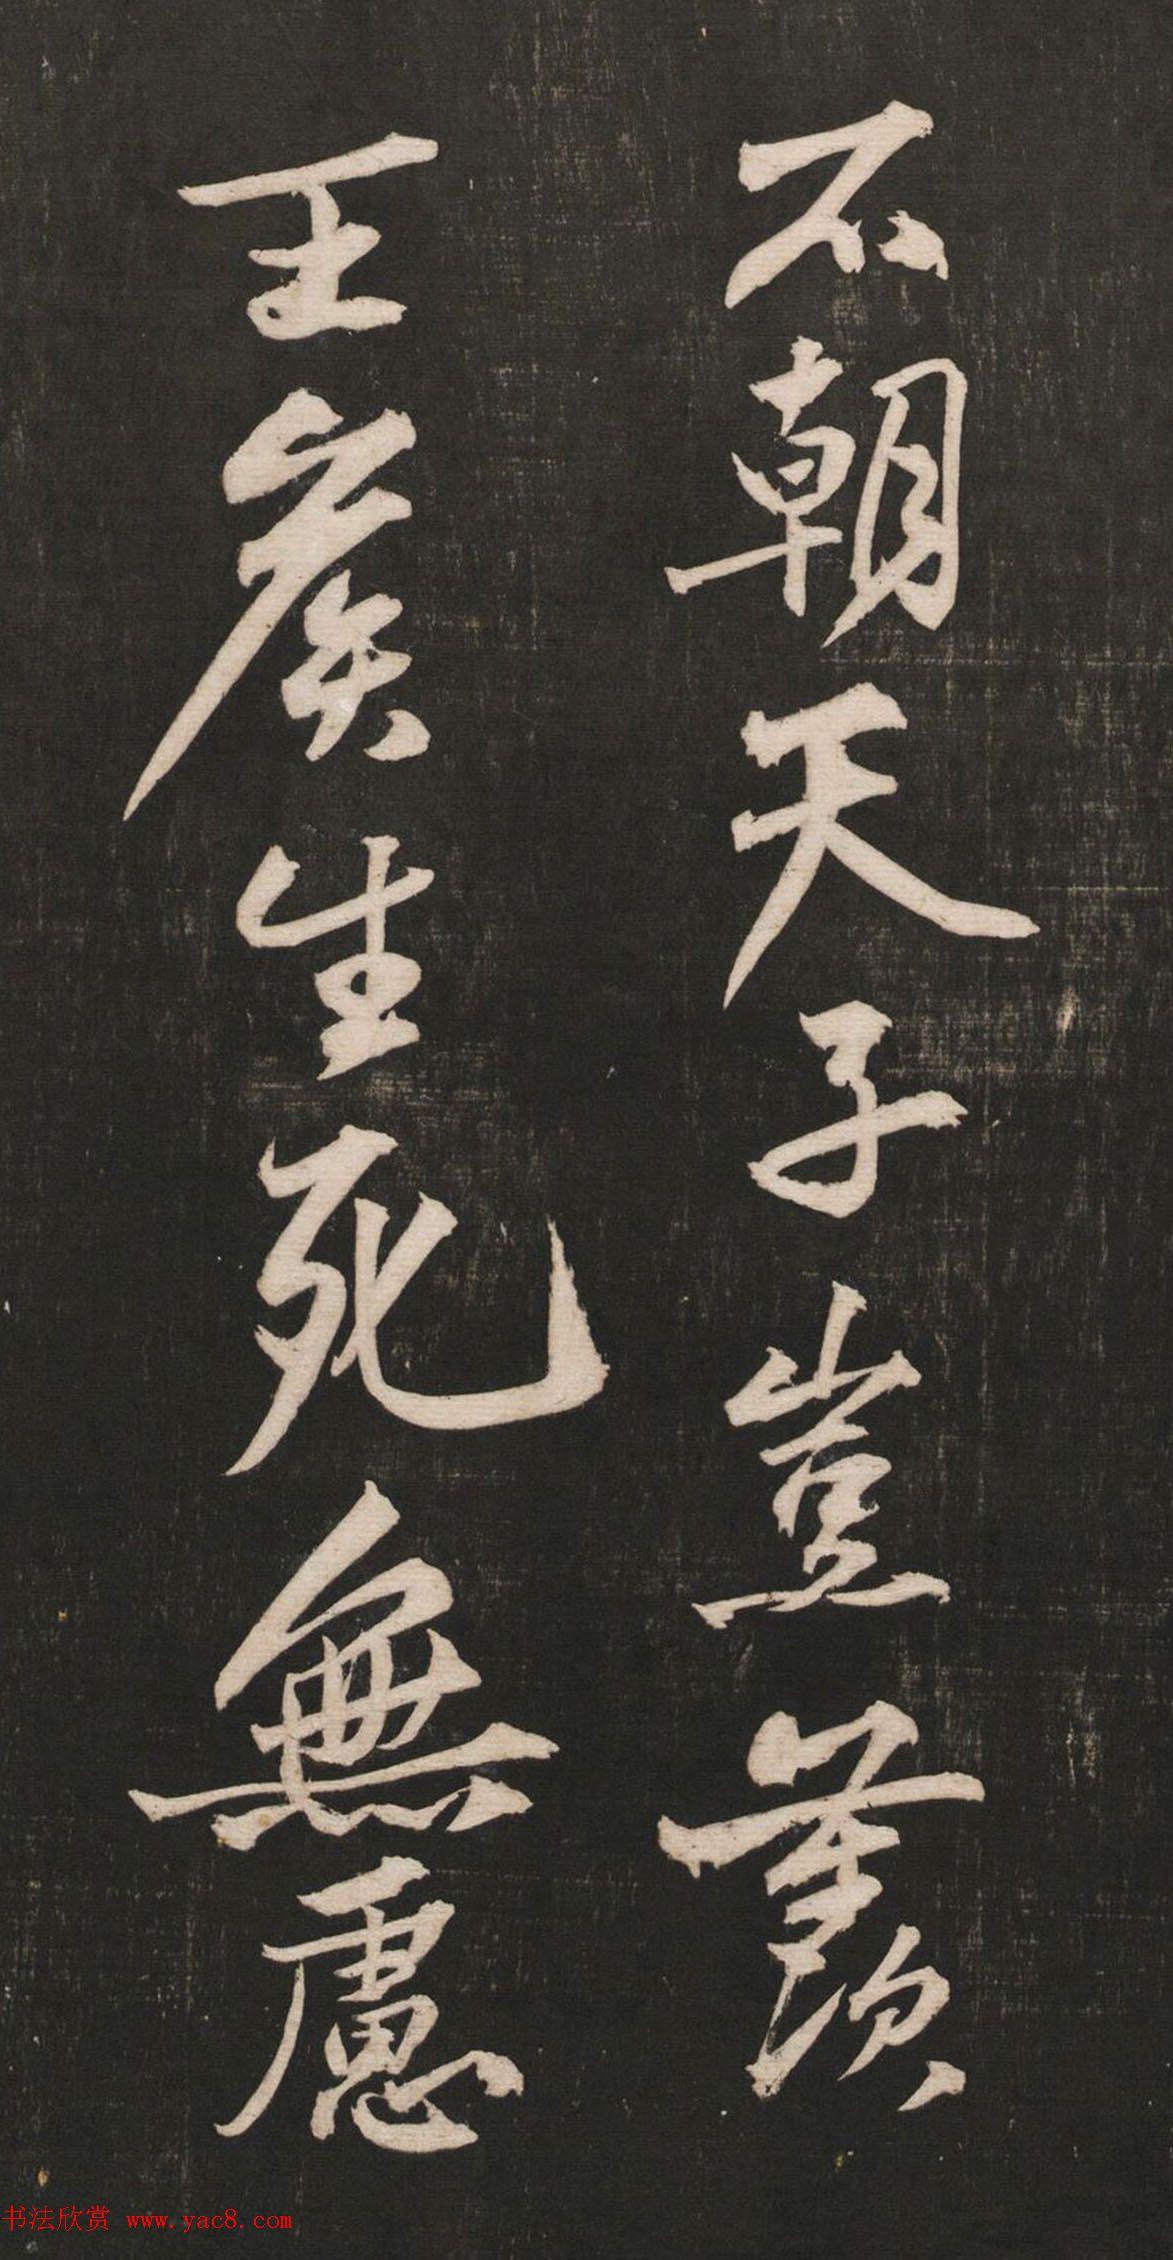 不朝天子豈羨
王矦生死無慮
书法欣赏 www.yac8.com